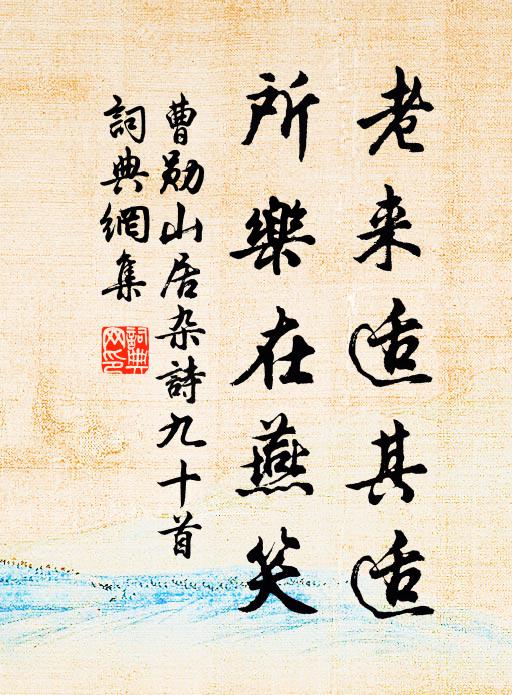 老来适其适
所樂在燕笑
曹勋山居杂詩九十首
詞典網集
詞典网印